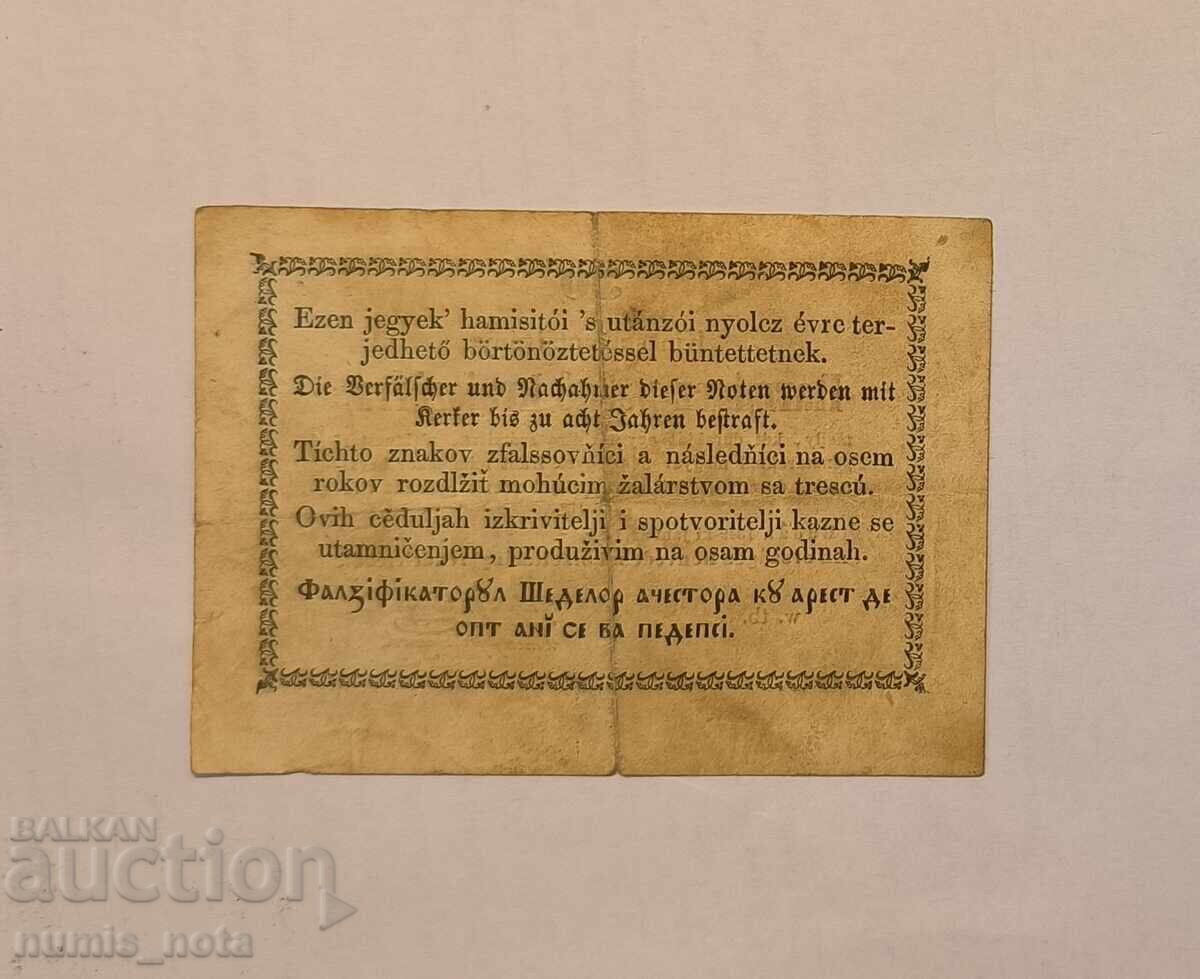 Ezen jegyek’ hamisitói ’s utánzói nyolcz évre ter-
jedhető börtönöztetéssel büntettetnek.
Die Verfälscher und Nachahmer dieser Noten werden mit
Kerker bis zu acht Jahren bestraft.
Tíchto znakov zfalssovňíci a následňíci na osem
rokov rozdlžiť mohúcim žalárstvom sa trescú.
Ovih cĕduljah izkrivitelji i spotvoritelji kazne se
utamničenjem, produživim na osam godinah.
Фалзіфікаторꙋл Шеделор ачестора кꙋ арест де
опт анĭ се ва педепсі.
w. tb.
BALKAN
auction
numis_nota